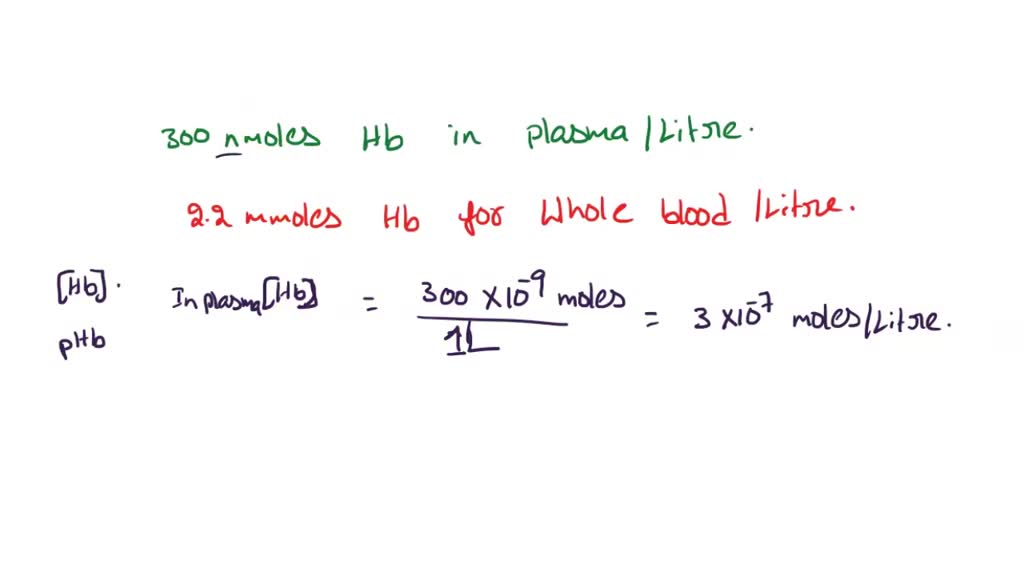 300 nmoles Hb in plasma/Litre.
2.2 mmoles Hb for Whole blood/Litre.
[Hb]. In plasma[Hb] = 300 × 10⁻⁹ moles / 1L = 3 × 10⁻⁷ moles/Litre.
pHb